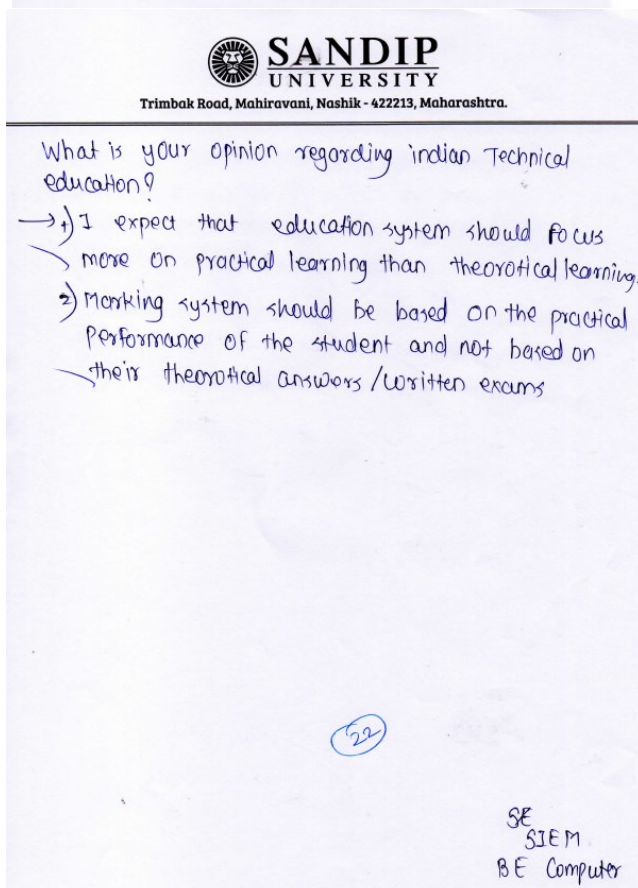 SANDIP
UNIVERSITY
Trimbak Road, Mahiravani, Nashik - 422213, Maharashtra.
What is your opinion regarding indian Technical
education?
→ 1) I expect that education system should focus
more on practical learning than theorotical learning.
2) Marking system should be based on the practical
Performance of the student and not based on
their theorotical answers/written exams
22
SE
SIEM
BE Computer